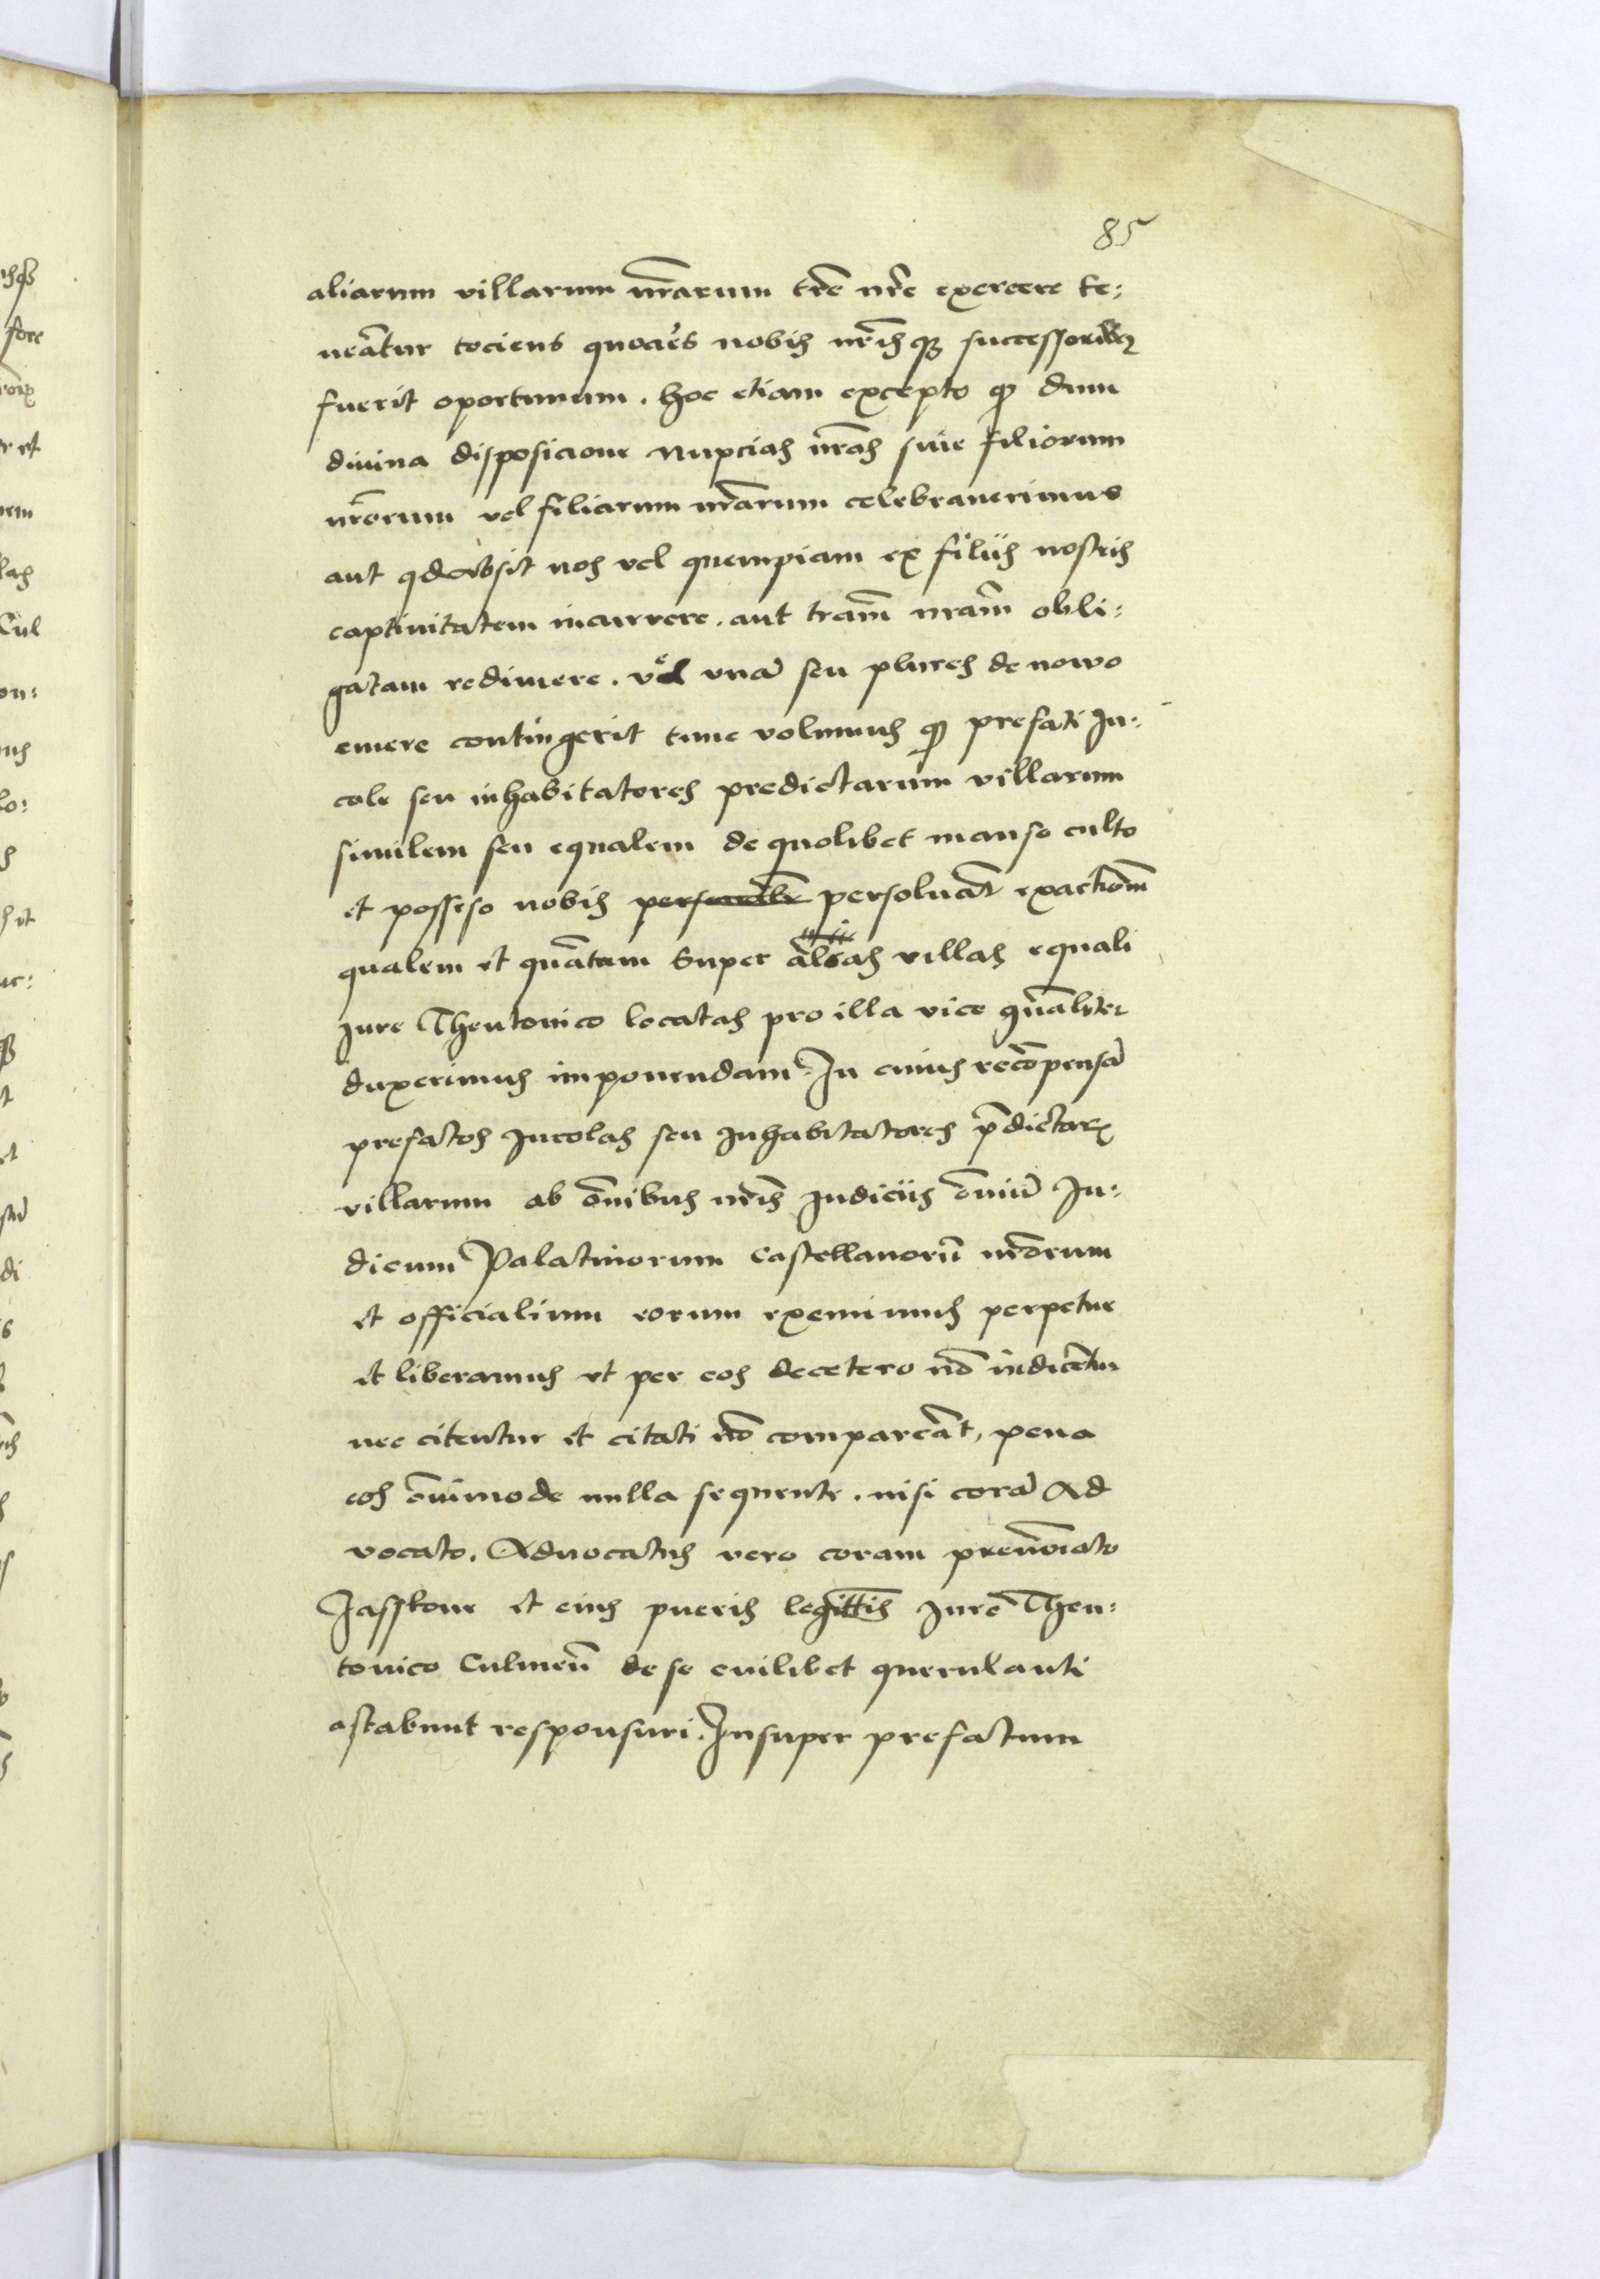 85
aliarum villarum nr̄arum tr̄re nr̄e exercere te:
neātur tociens quocīes nobis nr̄isq3 successoribꝫ
fuerit oportunum. hoc etiam excepto qͦ dum
diuina disposicione Nupcias nr̄as siue filiorum
nr̄orum vel filiarum nr̄arum celebrauerimus
aut qd absit nos vel quempiam ex filiis nostris
captiuitatem incurrere. aut tr̄am nr̄am obli:
gatam redimere. vel vnā seu plures de nowo
emere contingerit tunc volumus qͦ prefati In:
cole seu inhabitatores predictarum villarum
similem seu equalem de quolibet manso culto
et possesso nobis persoluāt exactiōem
qualem et quātam Super alias villas equali
Iure Theutonico locatas pro illa vice gn̄aliter
duxerimus imponendam. In cuius recōpensā
prefatos Incolas seu Inhabitatores p̄dictarꝝ
villarum ab ōnibus nr̄is Iudiciis ōniū Iu:
dicum Palatinorum Castellanorū nr̄orum
et officialium eorum eximimus perpetue
et liberamus vt per eos decetero nō iudicētur
nec citentur et citati nō compareāt, pena
eos ōnimode nulla sequente. nisi corā Ad
vocato. Aduocatus vero coram prenōiato
Jasskone et eius pueris legittīs Iure Theu:
tonico Culmeñ de se cuilibet querulanti
astabunt responsuri. Insuper prefatum